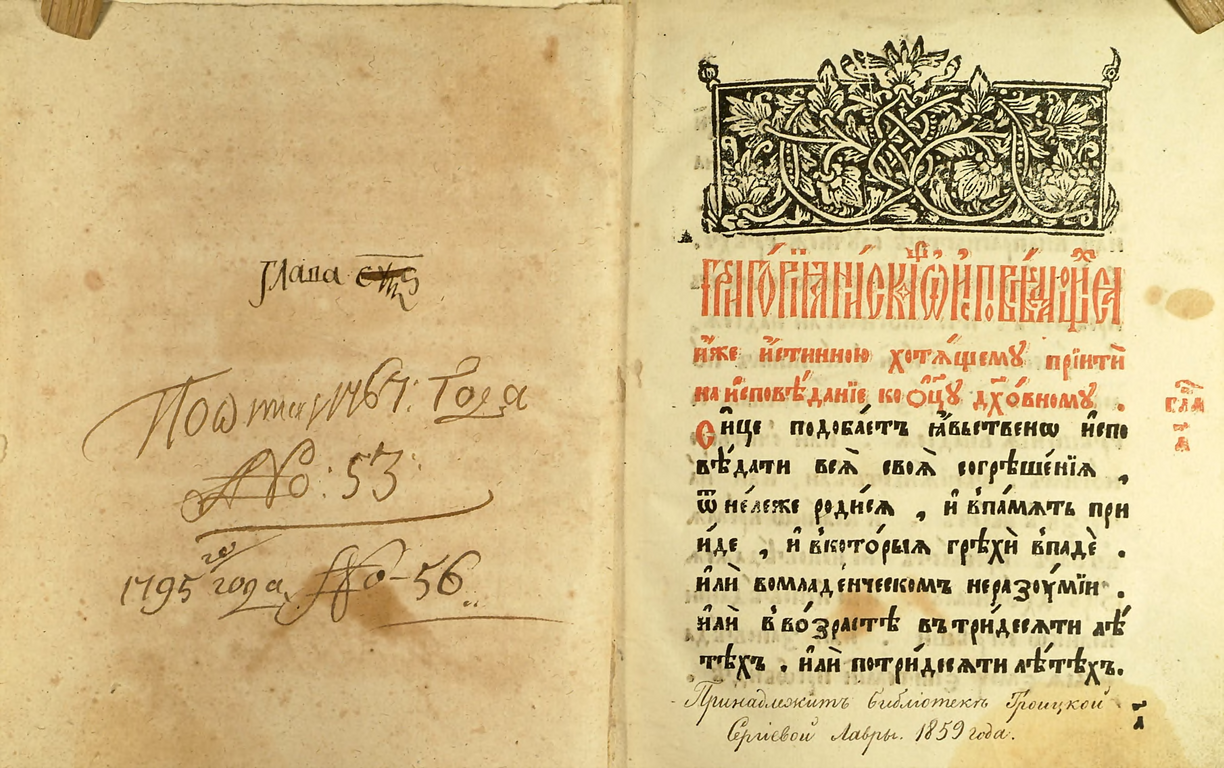 глава
По ѡписи 1767: Года
№: 53
1795 го/ года № 56
и҆́же и҆́стинною хотѧ́щемꙋ прїити̂
на и҆сповѣ́данїе ко ѻ҆ц҃ꙋ дх҃о́вному .
Си́це подобае́тъ ꙗ҆́вьственнѡ и҆спо
вѣ́дати всѧ̀ своѧ̀ согрѣше́нїѧ ,
ѿ не́леже роди́сѧ , и҆ впа́мѧть при
и́де , и҆ вкото́рыѧ грѣхѝ впадѐ .
и҆лѝ вомладе́нческомъ неразꙋ́мїи .
и҆лѝ вво́зрастѣ вътри́десѧти лѣ́
тѣхъ . и҆лѝ потри́десѧти лѣ́тѣхъ.
гла
а҃
Принадлежитъ библіотекѣ Троицкой
Сергіевой Лавры. 1859 года.